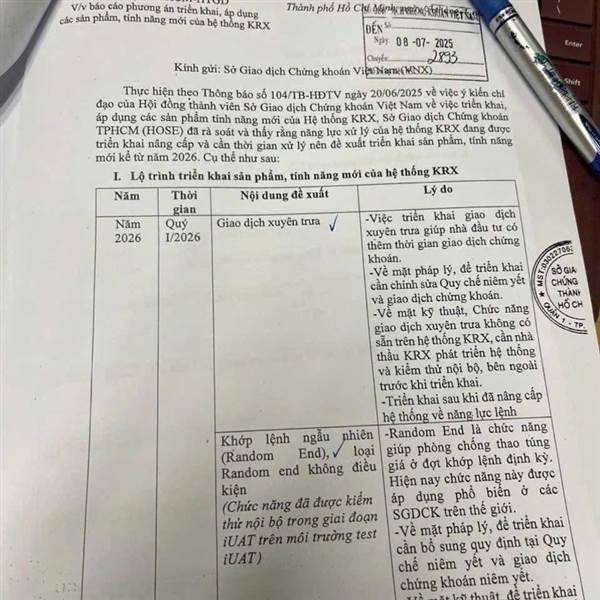 V/v báo cáo phương án triển khai, áp dụng
các sản phẩm, tính năng mới của hệ thống KRX
Thành phố Hồ Chí Minh, ngày
ĐẾN Số:
Ngày: 08-07-2025
Chuyển: 2893
Kính gửi: Sở Giao dịch Chứng khoán Việt Nam (VNX)
Thực hiện theo Thông báo số 104/TB-HĐTV ngày 20/06/2025 về việc ý kiến chỉ
đạo của Hội đồng thành viên Sở Giao dịch Chứng khoán Việt Nam về việc triển khai,
áp dụng các sản phẩm, tính năng mới của Hệ thống KRX, Sở Giao dịch Chứng khoán
TPHCM (HOSE) đã rà soát và thấy rằng năng lực xử lý của hệ thống KRX đang được
triển khai nâng cấp và cần thời gian xử lý nên đề xuất triển khai sản phẩm, tính năng
mới kể từ năm 2026. Cụ thể như sau:
I. Lộ trình triển khai sản phẩm, tính năng mới của hệ thống KRX
Năm
Thời
gian
Nội dung đề xuất
Lý do
Năm
2026
Quý
I/2026
Giao dịch xuyên trưa
-Việc triển khai giao dịch
xuyên trưa giúp nhà đầu tư có
thêm thời gian giao dịch chứng
khoán.
-Về mặt pháp lý, để triển khai
cần chỉnh sửa Quy chế niêm yết
và giao dịch chứng khoán.
-Về mặt kỹ thuật, Chức năng
giao dịch xuyên trưa không có
sẵn trên hệ thống KRX, cần nhà
thầu KRX phát triển hệ thống
và kiểm thử nội bộ, bên ngoài
trước khi triển khai.
-Triển khai sau khi đã nâng cấp
hệ thống về năng lực lệnh
Khớp lệnh ngẫu nhiên
(Random End), loại
Random end không điều
kiện
(Chức năng đã được kiểm
thử nội bộ trong giai đoạn
iUAT trên môi trường test
iUAT)
-Random End là chức năng
giúp phòng chống thao túng
giá ở đợt khớp lệnh định kỳ.
Hiện nay chức năng này được
áp dụng phổ biến ở các
SGDCK trên thế giới.
-Về mặt pháp lý, để triển khai
cần bổ sung quy định tại Quy
chế niêm yết và giao dịch
chứng khoán niêm yết.
-Về mặt kỹ thuật, để triển khai
SỞ GIA
CHỨNG
THÀNH
HỒ CH
QUẬN 1 - TP.
Enter
Shift